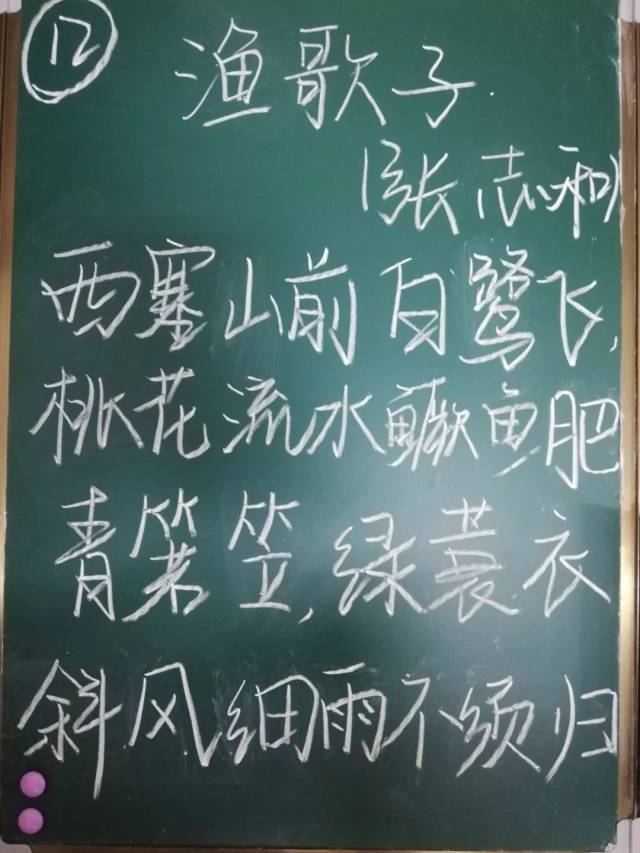 12
渔歌子.
张志和
西塞山前白鹭飞,
桃花流水鳜鱼肥
青箬笠,绿蓑衣
斜风细雨不须归